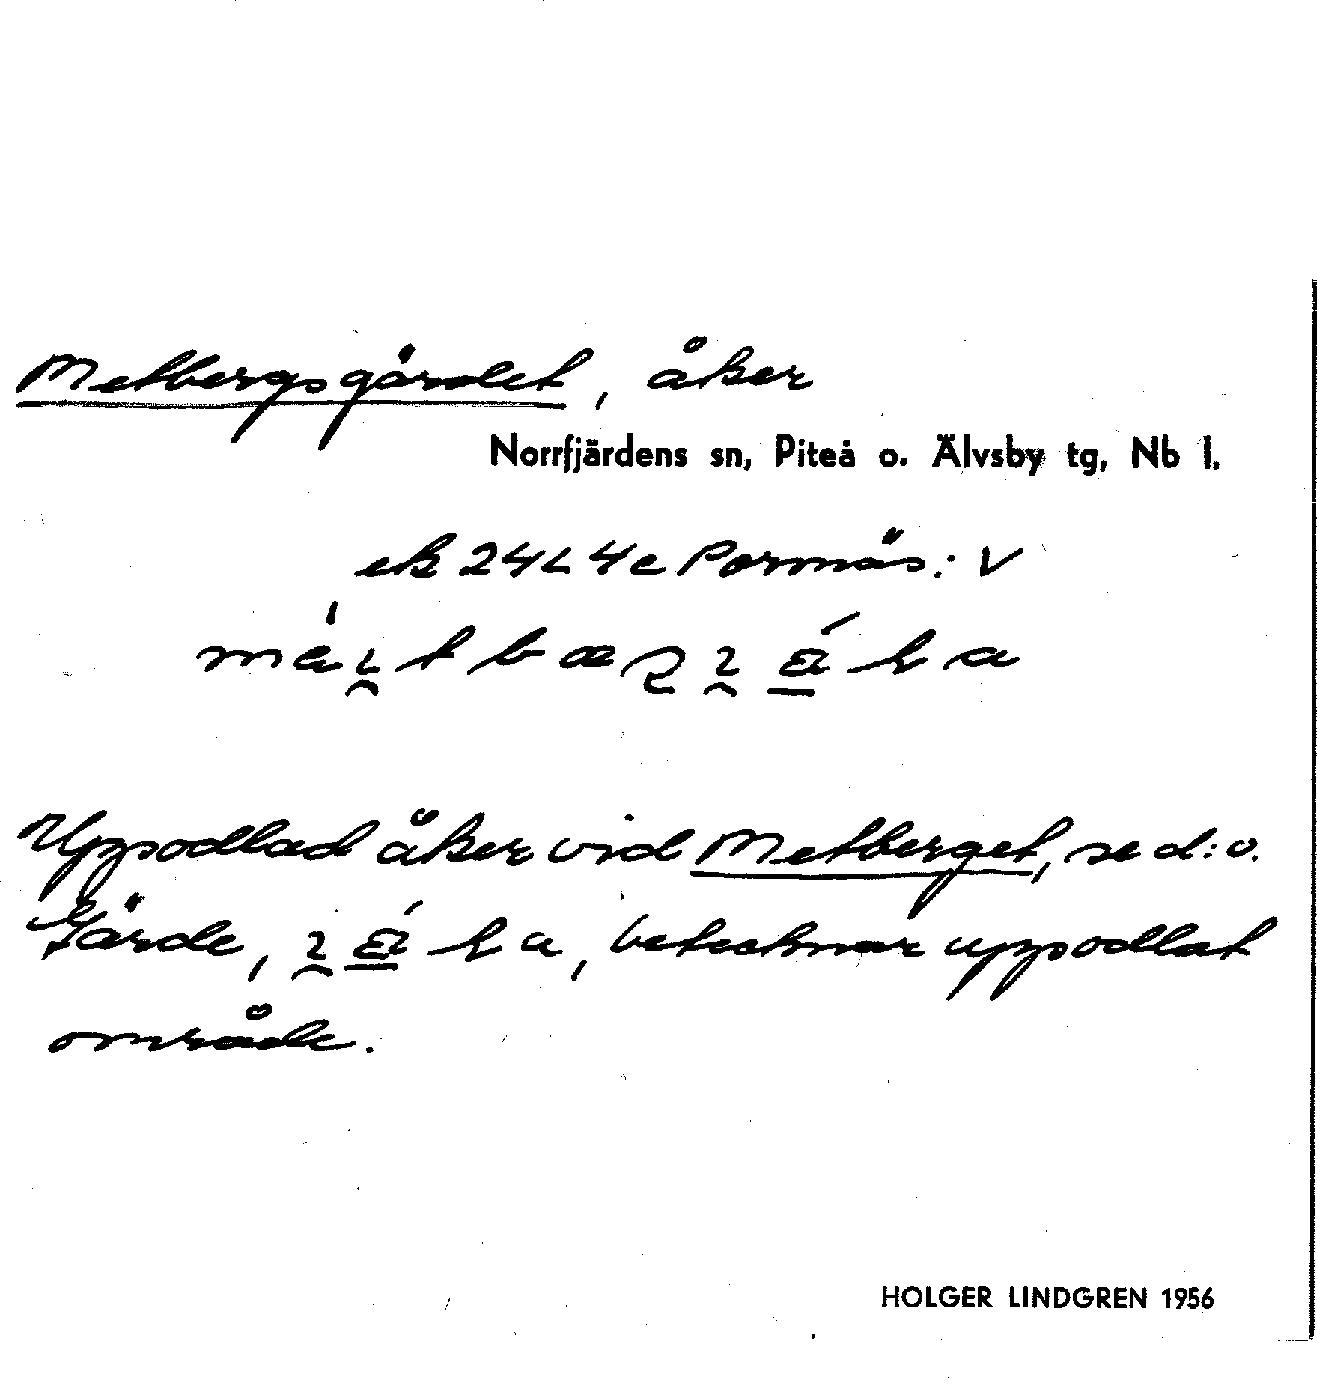 Metbergsgärdet, åker
Norrfjärdens sn, Piteå o. Älvsby tg, Nb l.
ek 24L4c Pormäs: V
Uppodlad åker vid Metberget, se d:o.
Gärde, betecknar uppodlat
område.
HOLGER LINDGREN 1956